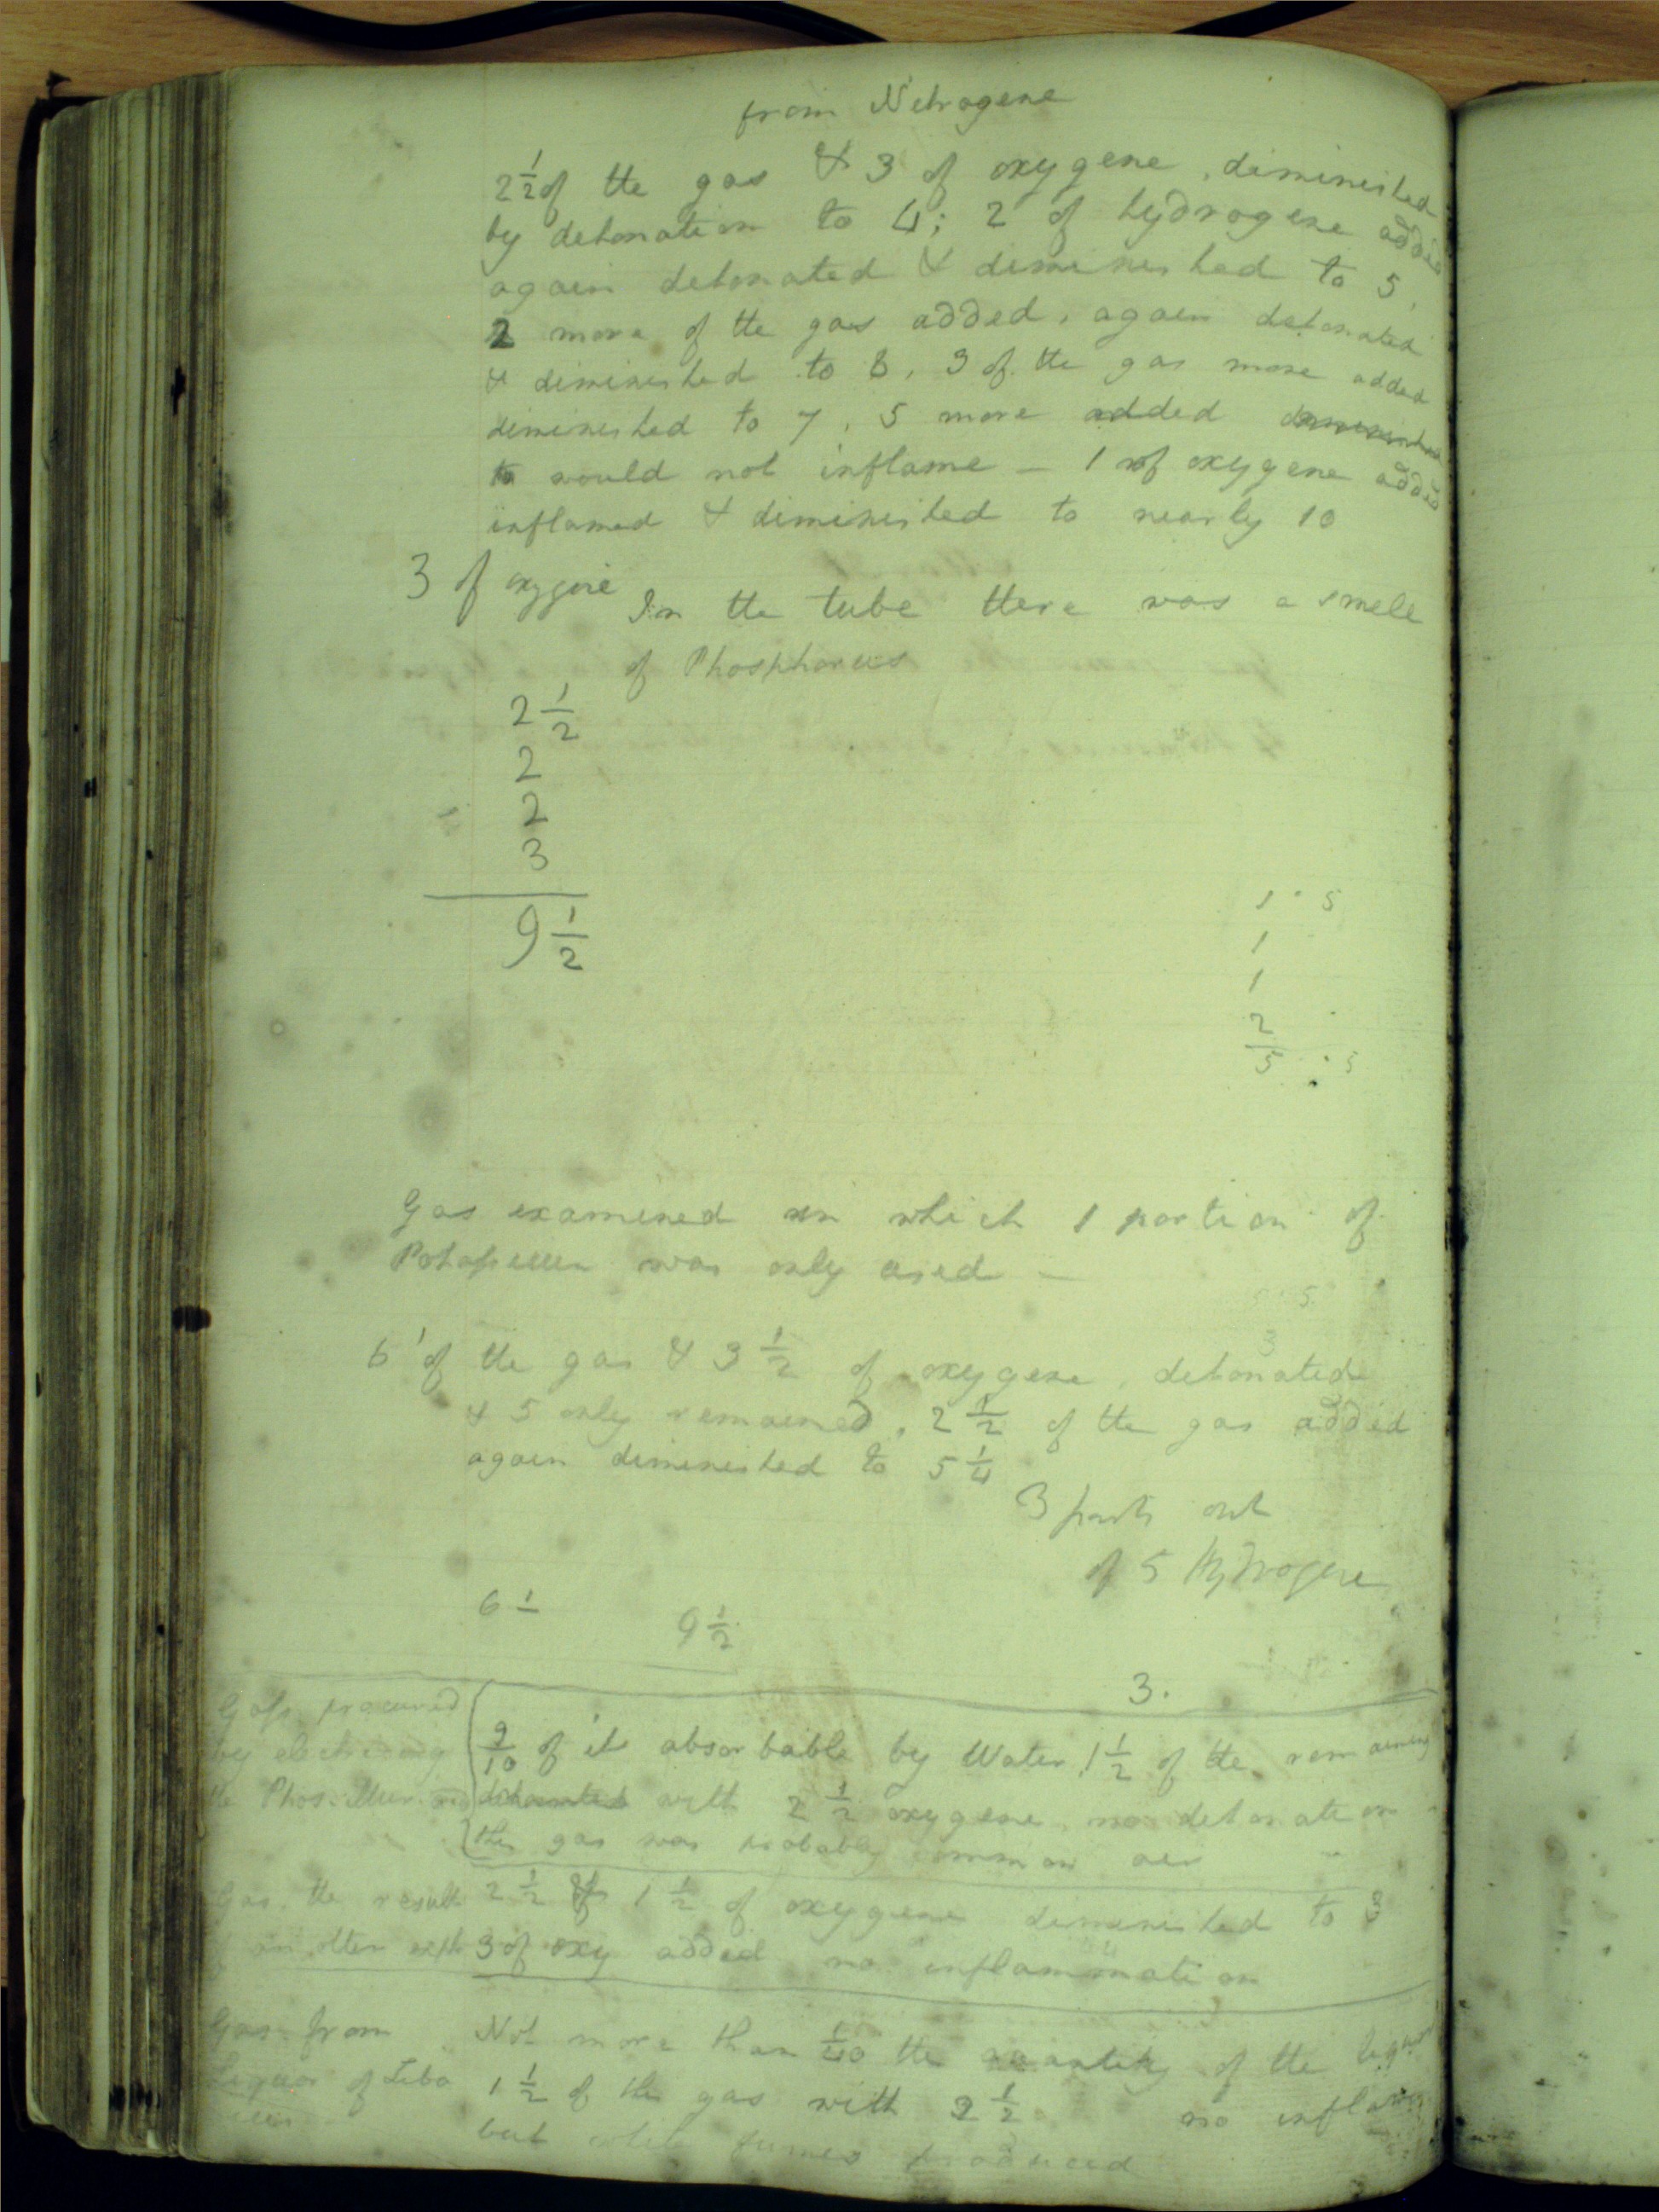 from Nitrogene
2 1/2 of the gas & 3 of oxygene, diminished
by detonation to 4; 2 of hydrogene added
again detonated & diminished to 5,
2 more of the gas added, again detonated
& diminished to 8, 3 of the gas more added
diminished to 7, 5 more added diminished
to would not inflame - 1 of oxygene added
inflamed & diminished to nearly 10
3 of oxygene
In the tube there was a smell
of Phosphorus
2 1/2
2
2
3
9 1/2
1 . 5
1
1
2
5 . 5
Gas examined in which 1 portion of
Potassium was only used -
6 of the gas & 3 1/2 of oxygene, detonated
& 5 only remained, 2 1/2 of the gas added
again diminished to 5 1/4
3 parts out
of 5 Hydrogene
6 1
9 1/2
3.
Gass procured
by electrising
the Phos.
9/10 of it absorbable by Water, 1 1/2 of the remaining
detonated with 2 1/2 oxygene, no detonation
this gas was probably common air
Gas, the result
of an other expt
2 1/2 & 1 1/2 of oxygene diminished to 3
3 of oxy added no inflammation
Gas from
Liquor of Liba
vius
Not more than 1/40 the quantity of the liquor
1 1/2 of the gas with 2 1/2 no inflam
but white fumes produced